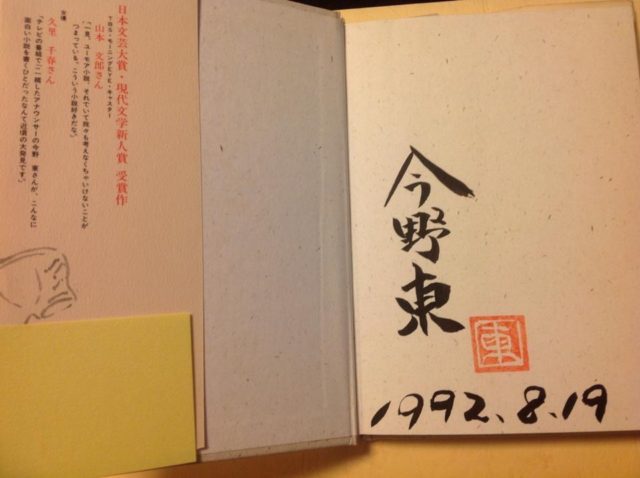 日本文芸大賞・現代文学新人賞 受賞作
TBS・モーニングEYE・キャスター
山本 文郎さん
「一見、ユーモア小説、それでいて我々も考えなくちゃいけないことが
つまっている。こういう小説好きだな」
女優
久里 千春さん
「テレビの番組でご一緒したアナウンサーの今野 東さんが、こんなに
面白い小説を書くひとだったなんて近頃の大発見です。」
今野東
東
1992.8.19